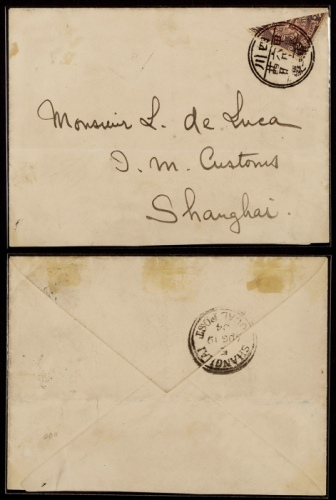 Monsieur L. de Luca
I. M. Customs
Shanghai.
SHANGHAI
LOCAL POST